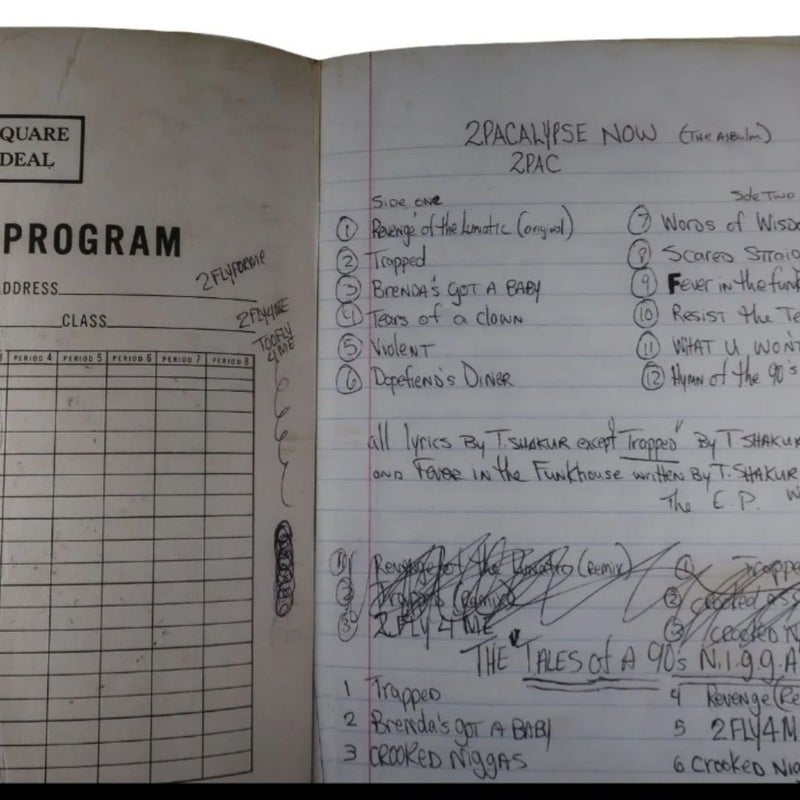 QUARE
DEAL
PROGRAM
ADDRESS
2FLYFORME
CLASS
2FLY4ME
TOOFLY
4 ME
3 PERIOD 4 PERIOD 5 PERIOD 6 PERIOD 7 PERIOD 8
2PACALYPSE NOW (The Album)
2PAC
Side one
① Revenge of the Lunatic (original)
② Trapped
③ BRENDA'S GOT A BABY
④ Tears of a clown
⑤ Violent
⑥ Dopefiend's Diner
Side Two
⑦ Words of Wisdo
⑧ Scared Straig
⑨ Fever in the funk
⑩ Resist the Te
⑪ WHAT U WON'T
⑫ Hymn of the 90's
all lyrics By T. SHAKUR except "Trapped" By T. SHAKUR
and Fever in the Funkhouse written By T. SHAKUR
The E.P. W
① Revenge of the Lunatic (Remix)
② Trapped (Remix)
③ 2 FLY 4 ME
① Trappe
② crooked ass
③ crooked N
THE "TALES of A 90's N.I.g.g.A
1 Trapped
2 Brenda's got A BABY
3 CROOKED NiggAS
4 Revenge (Re
5 2FLY4M
6 Crooked Nig